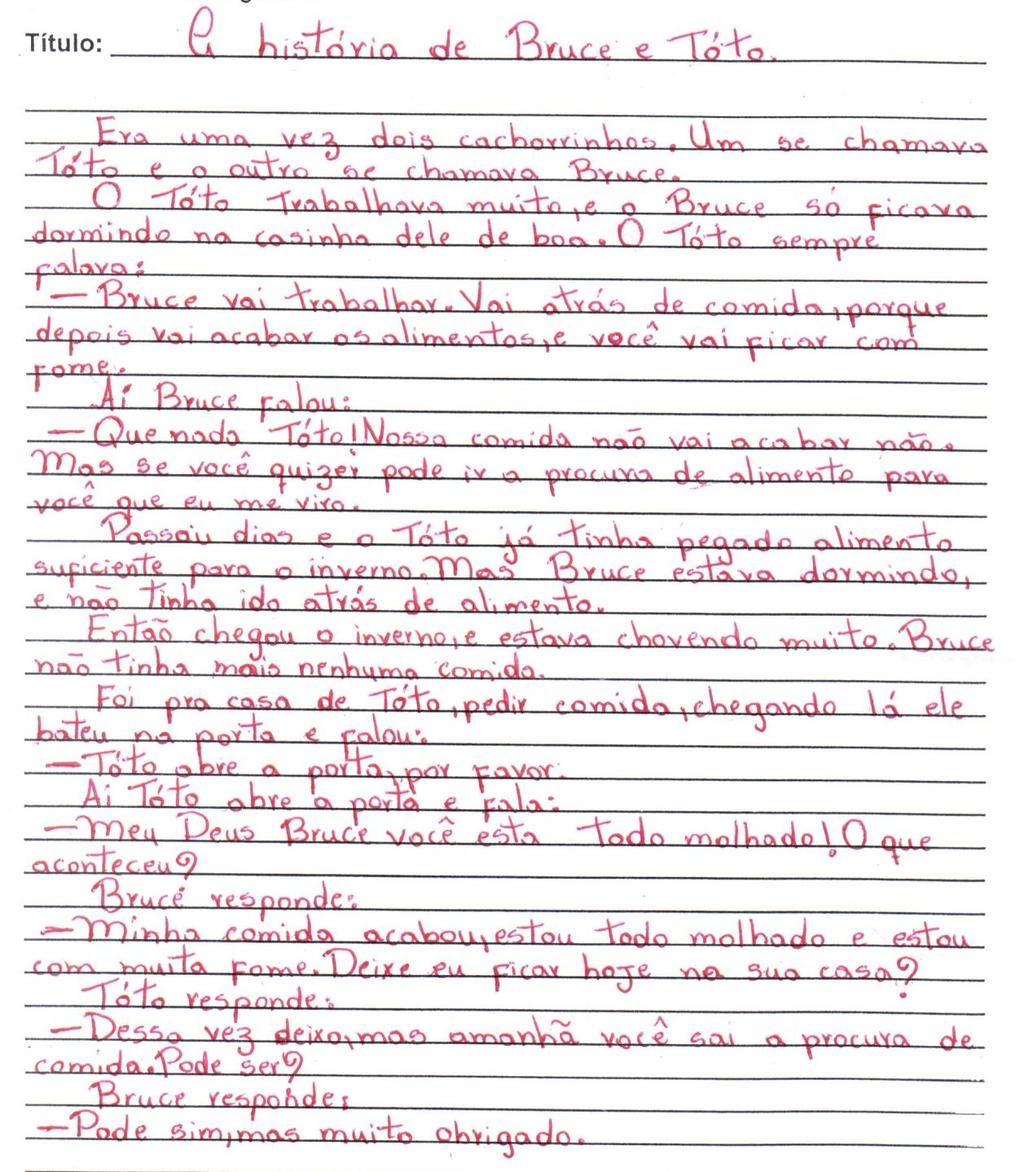 Título: A história de Bruce e Tóto.
Era uma vez dois cachorrinhos. Um se chamava
Tóto e o outro se chamava Bruce.
O Tóto trabalhava muito, e o Bruce só ficava
dormindo na casinha dele de boa. O Tóto sempre
falava:
— Bruce vai trabalhar. Vai atrás de comida, porque
depois vai acabar os alimentos, e você vai ficar com
fome.
Aí Bruce falou:
— Que nada Tóto! Nossa comida não vai acabar não.
Mas se você quizer pode ir a procura de alimento para
você que eu me viro.
Passou dias e o Tóto já tinha pegado alimento
suficiente para o inverno. Mas Bruce estava dormindo,
e não tinha ido atrás de alimento.
Então chegou o inverno, e estava chovendo muito. Bruce
não tinha mais nenhuma comida.
Foi pra casa de Tóto, pedir comida, chegando lá ele
bateu na porta e falou:
— Tóto abre a porta, por favor.
Ai Tóto abre a porta e fala:
— Meu Deus Bruce você esta todo molhado! O que
aconteceu?
Bruce responde:
— Minha comida acabou, estou todo molhado e estou
com muita fome. Deixe eu ficar hoje na sua casa?
Tóto responde:
— Dessa vez deixo, mas amanhã você sai a procura de
comida. Pode ser?
Bruce responde:
— Pode sim, mas muito obrigado.